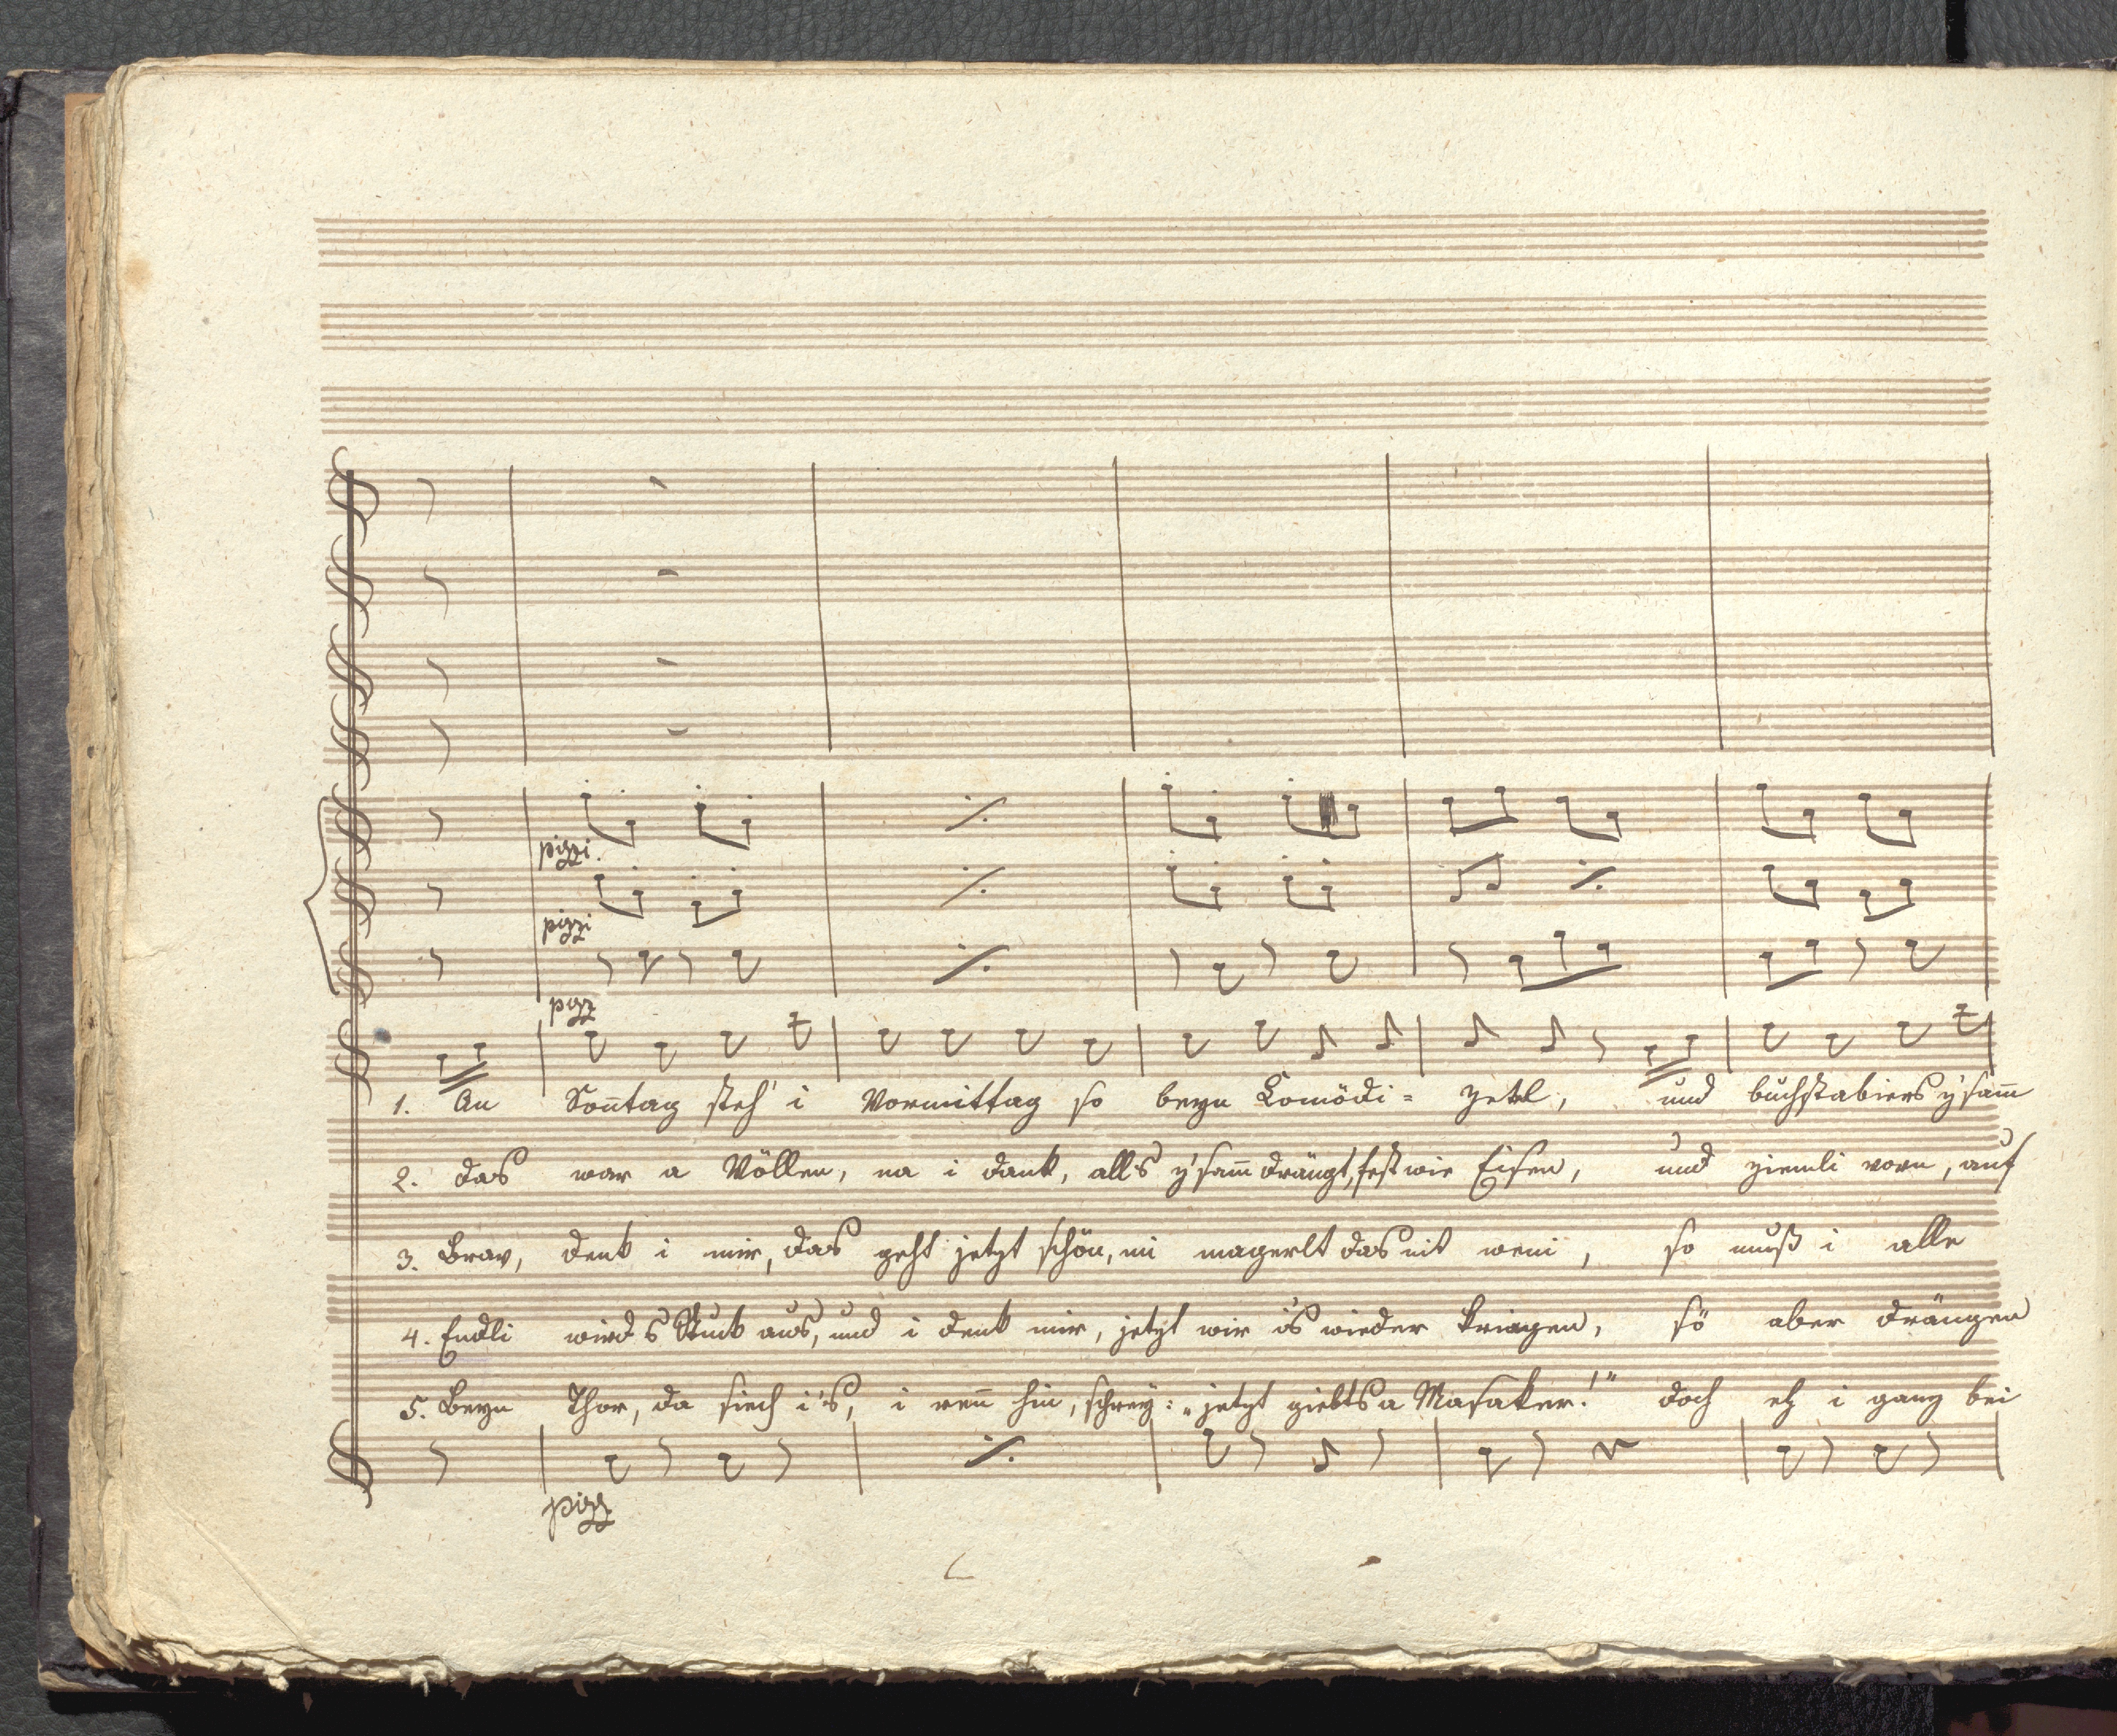 pizzi.
pizzi
pizz
1. An Soñtag steh' i Vormittag so beyn Komödi= zetl, und buchstabiers z'sam̄
2. das war a Völlen, na i dank, alls z'sam̄ drängt, fest wie Eisen, und ziemli vorn, auf
3. Brav, denk i mir, das geht jetzt schön, mi magerlt das nit weni, so muß i alle
4. Endli wird s Stuck aus, und i denk mir, jetzt wir i's wieder kriagen, sö aber drängen
5. Beyn Thor, da siech i's, i reñ hin, schrey: „jetzt giebts a Masaker!" doch eh i ganz bei
pizz